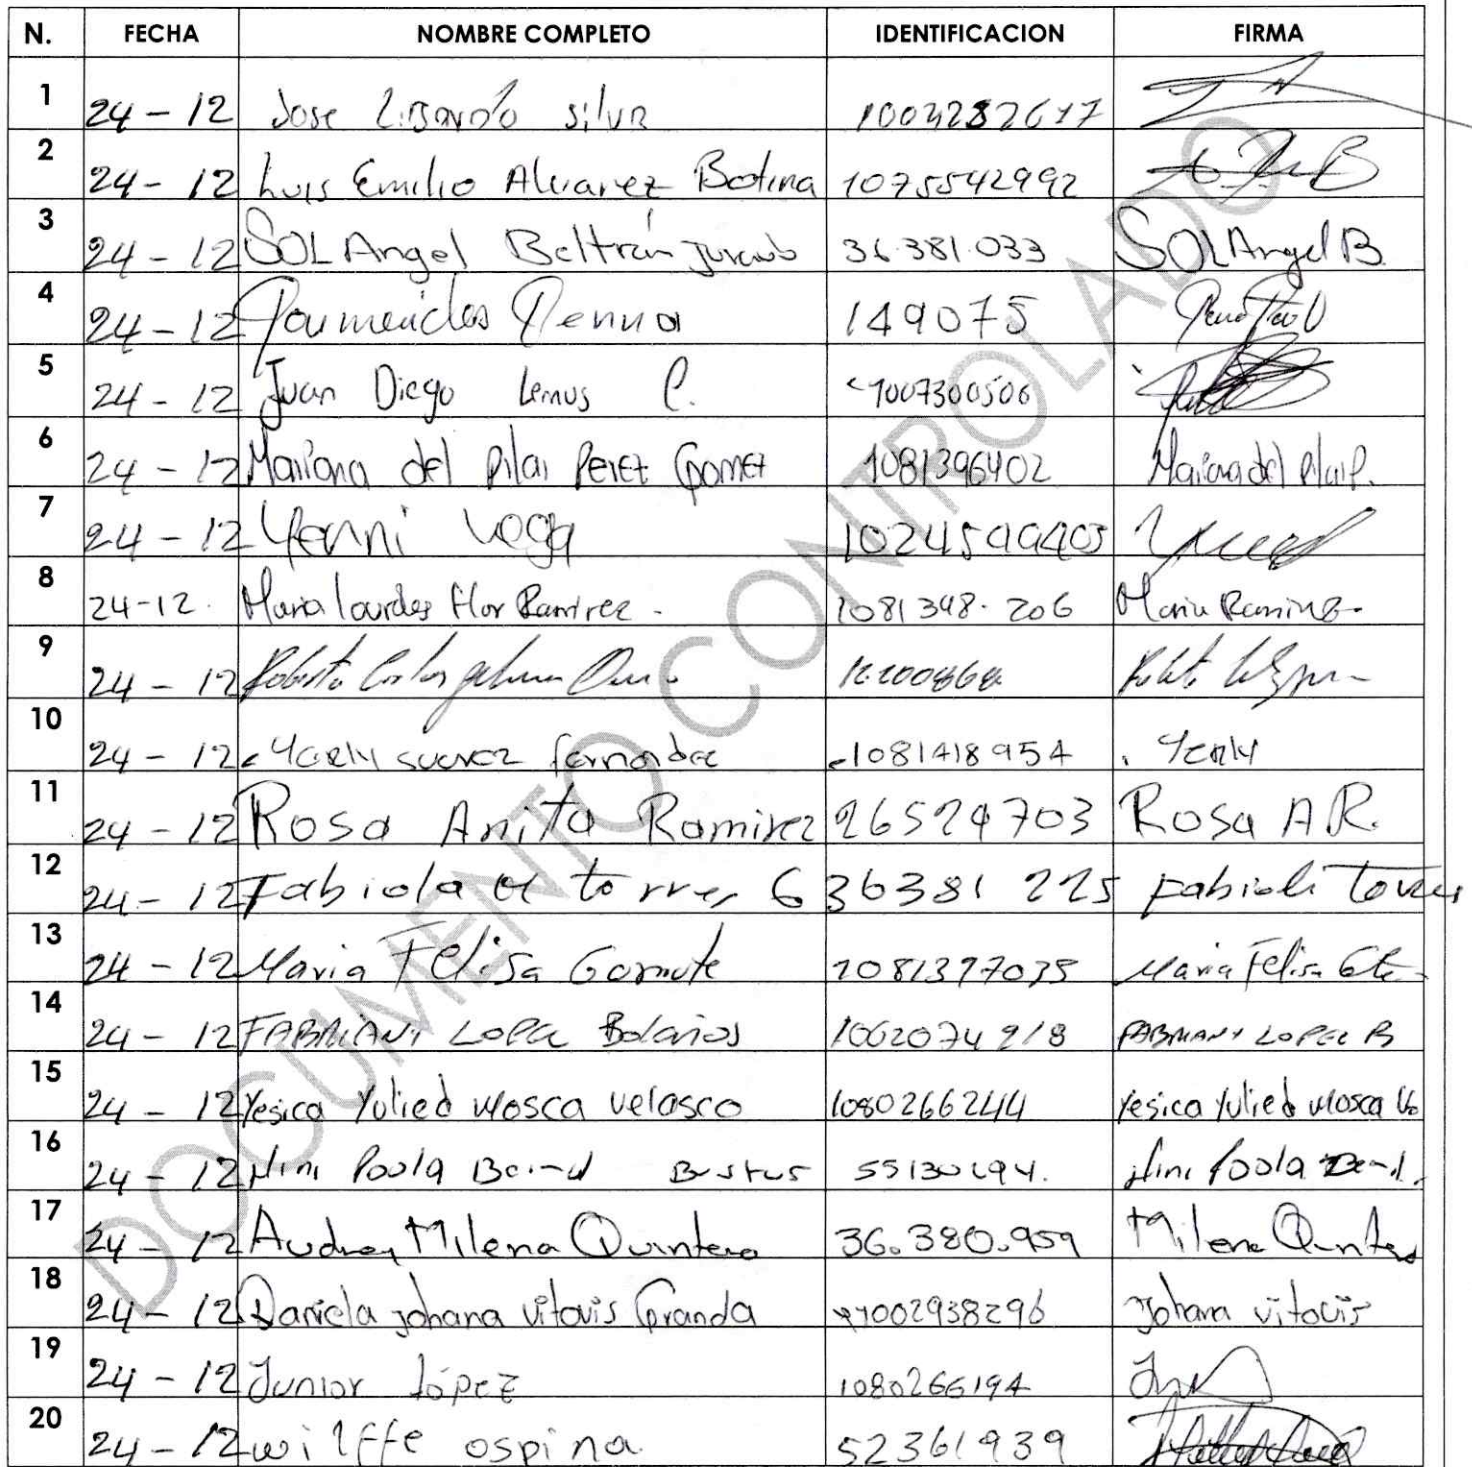 N. FECHA NOMBRE COMPLETO IDENTIFICACION FIRMA
1 24-12 Jose Libardo Silva 1003282617
2 24-12 Luis Emilio Alvarez Botina 1075542992
3 24-12 SOL Angel Beltrán Jurado 36.381.033 SOL Angel B.
4 24-12 Parmenides Penna 149075
5 24-12 Juan Diego Lemus C. 1007300506
6 24-12 Mariana del Pilar Perez Gomez 1081396402 Mariana del Pilar P.
7 24-12 Yenni Vega
8 24-12. Maria lourdes Flor Ramirez - 1081398.206 Maria Ramirez.
9 24-12 Roberto Carlos
10 24-12 Yerly suarez fernandez 1081418954 Yerly
11 24-12 Rosa Anita Ramirez 26529703 Rosa A R.
12 24-12 Fabiola torres G 36381225 Fabiola Torres
13 24-12 Maria Felisa Garnute 1081397035 Maria Felisa
14 24-12 FABRIANY LOPEZ Bolaños 1062074918 FABRIANY LOPEZ B
15 24-12 Yesica Yulied Mosca Velasco 1080266244 Yesica Yulied Mosca Vo
16 24-12 Nini Paola Bustos Nini Paola
17 24-12 Audrey Milena Quintero 36.380.959 Milena Quintero
18 24-12 Daniela johana vitovis Granda 1002938296 Johana vitovis
19 24-12 Junior López 1080266194
20 24-12 wilffe ospina. 52361939
DOCUMENTO CONTROLADO